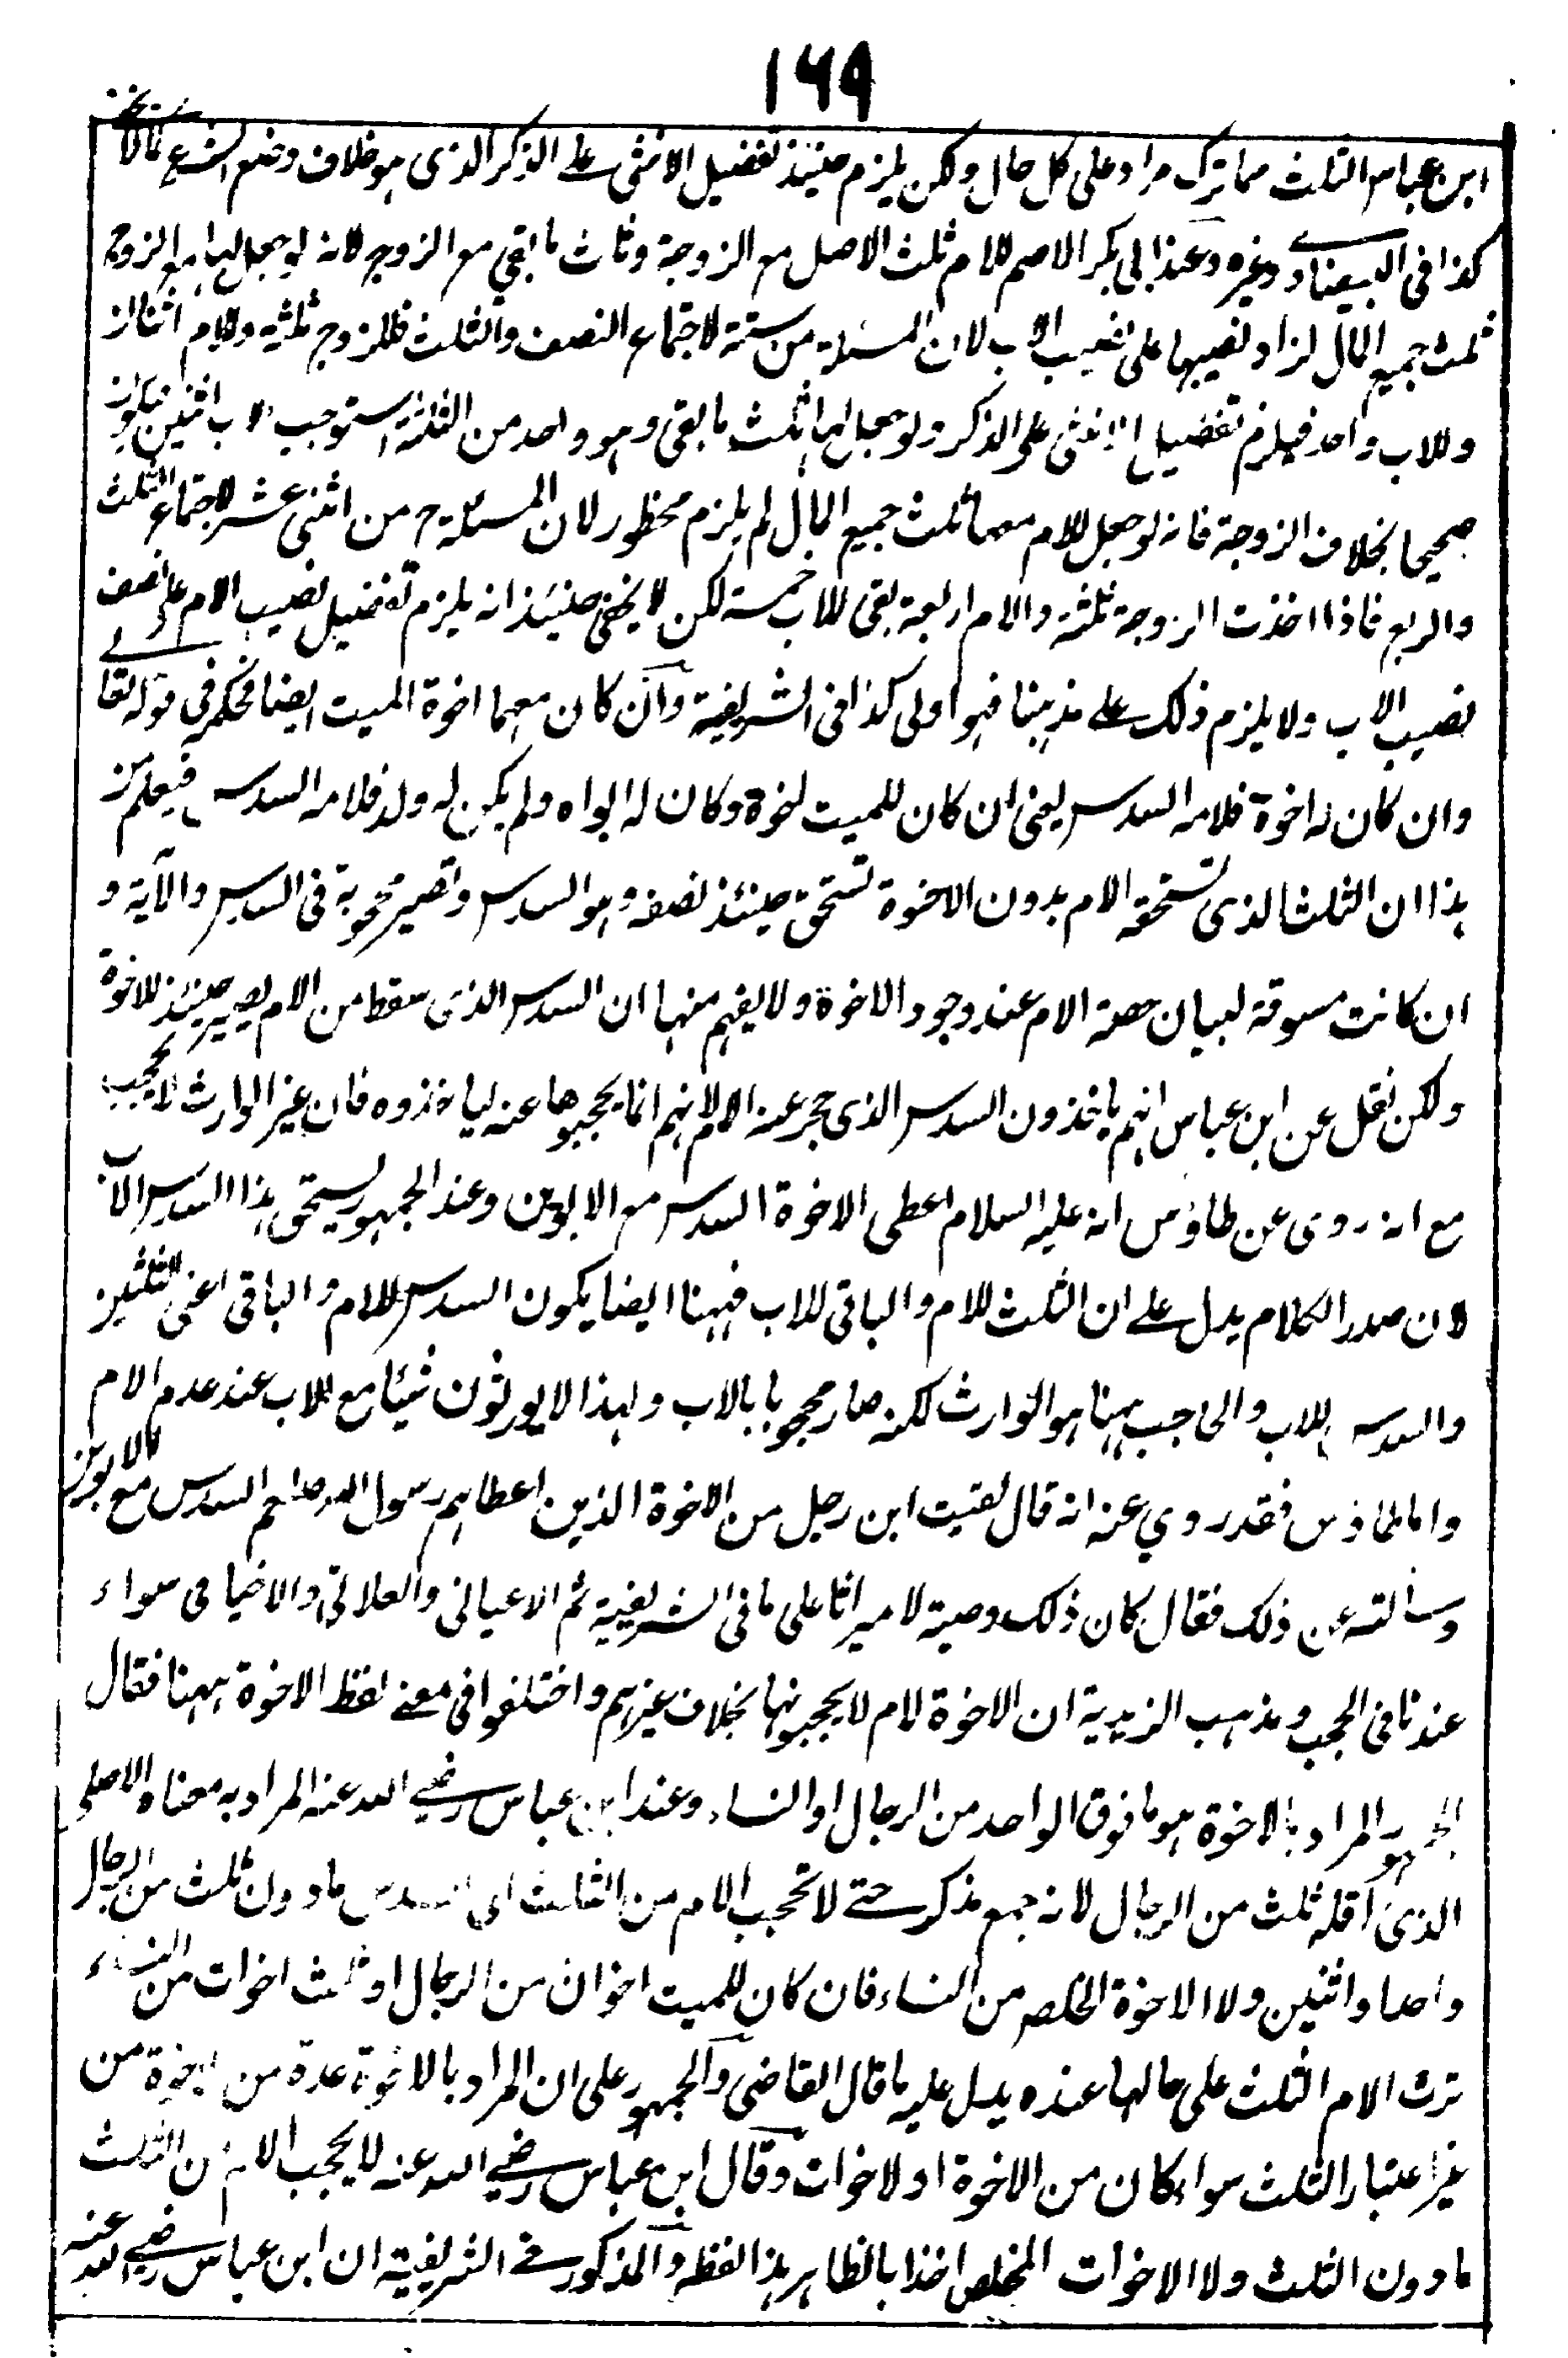 ١٦٩
ابن عباس الثلث مما ترك مراد على كل حال ولكن يلزم حينئذ تفضيل الانثى على الذكر الذى هو خلاف وضع الشرع
كذا فى البيضاوى وغيره وعند ابى بكر الاصم للام ثلث الاصل مع الزوجة وثلث ما بقى مع الزوج لانه لو جعل لها مع الزوج
ثلث جميع المال لزاد نصيبها على نصيب الاب لان المسئلة من ستة لاجتماع النصف والثلث فللزوج ثلثة وللام اثنان
وللاب واحد فيلزم تفضيل الانثى على الذكر ولو جعل لها ثلث ما بقى وهو واحد من الثلثة استوجب الاب اثنين فيكون
صحيحا بخلاف الزوجة فانه لو جعل للام معها ثلث جميع المال لم يلزم محظور لان المسئلة ح من اثنى عشر لاجتماع الثلث
والربع فاذا اخذت الزوجة ثلثة والام اربعة بقى للاب خمسة لكن لا يخفى حينئذ انه يلزم تفضيل نصيب الام على نصف
نصيب الاب ولا يلزم ذلك على مذهبنا فهو اولى كذا فى الشريفية وان كان معهما اخوة الميت ايضا فحكمه فى قوله تعالى
وان كان له اخوة فلامه السدس يعنى ان كان للميت اخوة وكان له ابواه ولم يكن له ولد فلامه السدس فيعلم من
هذا ان الثلث الذى تستحقه الام بدون الاخوة تستحق حينئذ نصفه وهو السدس وتصير محجوبة فى السدس والآية و
ان كانت مسوقة لبيان حصة الام عند وجود الاخوة ولا يفهم منها ان السدس الذى سقط من الام يصير حينئذ للاخوة
ولكن نقل عن ابن عباس انهم ياخذون السدس الذى حجر عنه الام لانهم انما يحجبوها عنه لياخذوه فان غير الوارث لا يحجب
مع انه روى عن طاؤس انه عليه السلام اعطى الاخوة السدس مع الابوين وعند الجمهور يستحق هذا السدس الاب
لان صدر الكلام يدل على ان الثلث للام والباقى للاب فههنا ايضا يكون السدس للام والباقى اعنى الثلثين
والسدس للاب والحاجب ههنا هو الوارث لكنه صار محجوبا بالاب ولهذا لا يورثون شيئا مع الاب عند عدم الام
واما طاؤس فقد روي عنه انه قال لقيت ابن رجل من الاخوة الذين اعطاهم رسول الله صلعم السدس مع الابوين
وسألته عن ذلك فقال كان ذلك وصية لا ميراثا على ما فى الشريفية ثم الاعيانى والعلاتى والاخيافى سواء
عندنا فى الحجب ومذهب الزيدية ان الاخوة لام لا يحجبونها بخلاف غيرهم واختلفوا فى معنى لفظ الاخوة ههنا فقال
الجمهور المراد بالاخوة هو ما فوق الواحد من الرجال او النساء وعند ابن عباس رضى الله عنه المراد به معناه الاصلى
الذى اقله ثلث من الرجال لانه جمع مذكر حتى لا تحجب الام من الثلث الى السدس ما دون ثلث من الرجال
واحدا واثنين ولا الاخوة الخلص من النساء فان كان للميت اخوان من الرجال او ثلث اخوات من النساء
ترث الام الثلث على حالها عنده يدل عليه ما قال القاضى والجمهور على ان المراد بالاخوة عدة من الاخوة من
غير اعتبار الثلث سواء كان من الاخوة او الاخوات وقال ابن عباس رضى الله عنه لا يحجب الام من الثلث
ما دون الثلث ولا الاخوات المخلص اخذا بالظاهر هذا لفظه والمذكور فى الشريفية ان ابن عباس رضى الله عنه